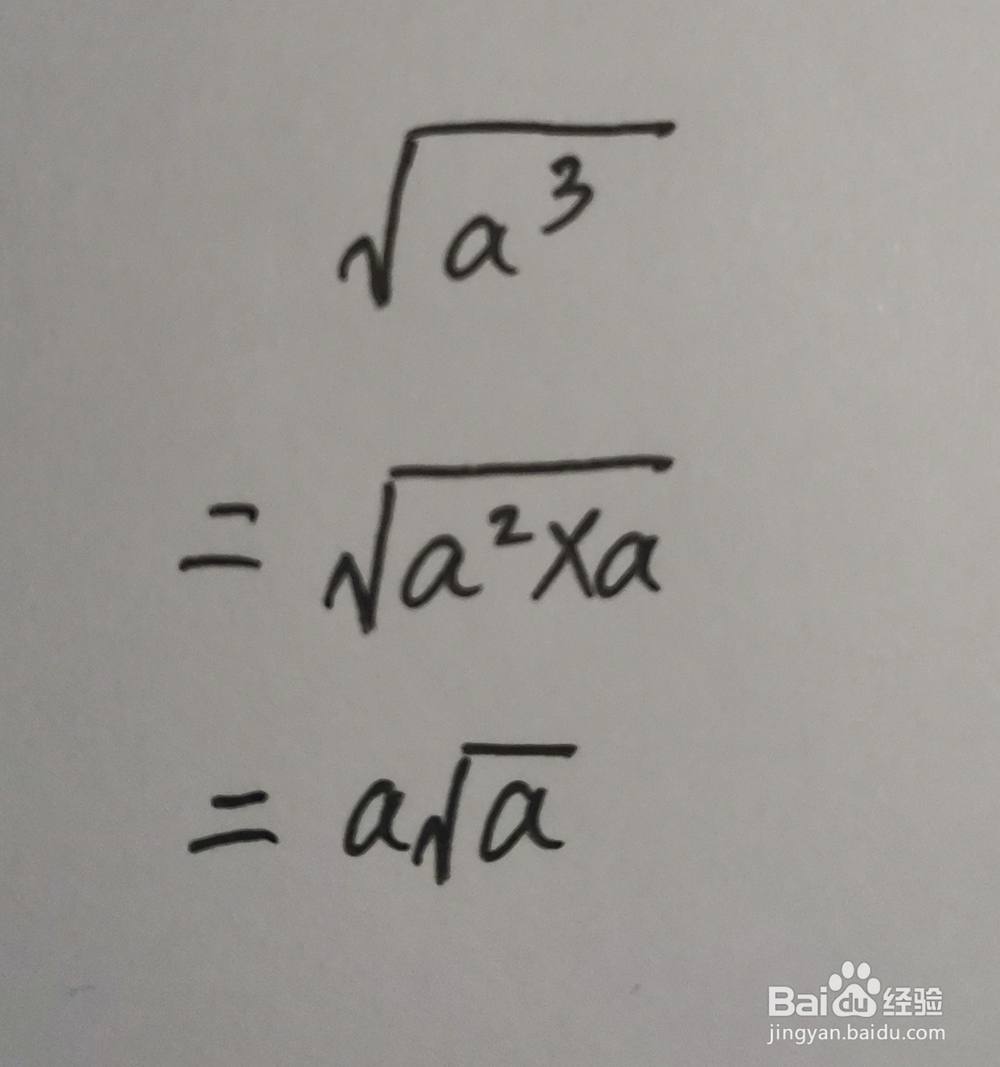 √a³
= √a²×a
= a√a
Bai du 经验
jingyan.baidu.com